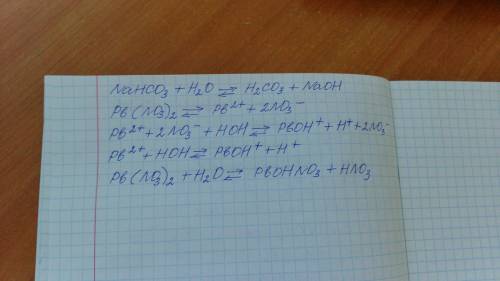 NaHCO₃ + H₂O ⇄ H₂CO₃ + NaOH
Pb(NO₃)₂ ⇄ Pb²⁺ + 2NO₃⁻
Pb²⁺ + 2NO₃⁻ + HOH ⇄ PbOH⁺ + H⁺ + 2NO₃⁻
Pb²⁺ + HOH ⇄ PbOH⁺ + H⁺
Pb(NO₃)₂ + H₂O ⇄ PbOHNO₃ + HNO₃